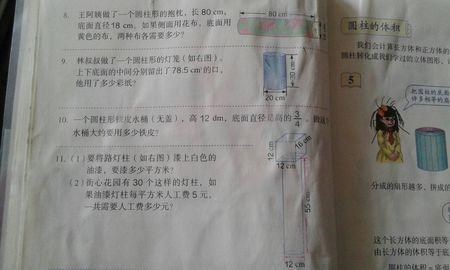 8. 王阿姨做了一个圆柱形的抱枕，长 80 cm，
底面直径18 cm。如果侧面用花布，底面用
黄色的布，两种布各需要多少？
80 cm
9. 林叔叔做了一个圆柱形的灯笼（如右图）。
上下底面的中间分别留出了 78.5 cm² 的口，
他用了多少彩纸？
20 cm
10. 一个圆柱形铁皮水桶（无盖），高 12 dm，底面直径是高的 3/4。
水桶大约要用多少铁皮？
11. (1) 要将路灯柱（如右图）漆上白色的
油漆，要漆多少平方米？
(2) 街心花园有 30 个这样的灯柱，如
果油漆灯柱每平方米人工费 5 元，
一共需要人工费多少元？
12 cm
16 cm
55 cm
12 cm
圆柱的体积
我们会计算长方体和正方体的
圆柱转化成我们学过的立体图形，
5
把圆柱的底面
许多相等的扇
分成的扇形越多，拼成的
这个长方体的底面积等
由长方体的体积等于底
圆柱的体积 = 底面